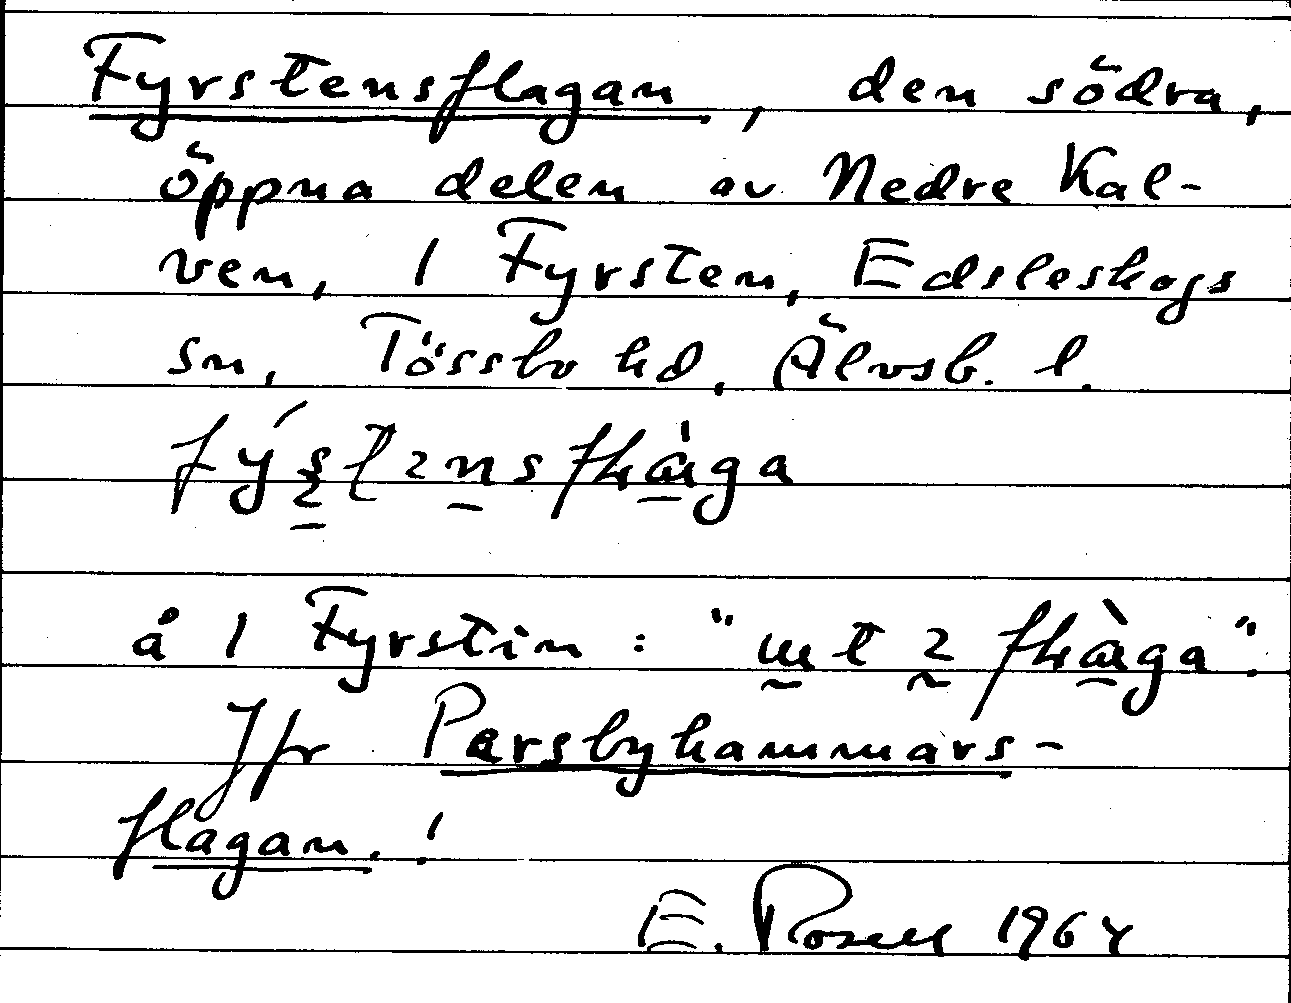 Fyrstensflagan, den södra,
öppna delen av Nedre Kal-
ven, i Fyrsten, Edsleskogs
sn, Tössbo hd, Älvsb. l.
å i Fyrstin: "
Jfr Persbyhammars-
flagan.!
E. Rosell 1964